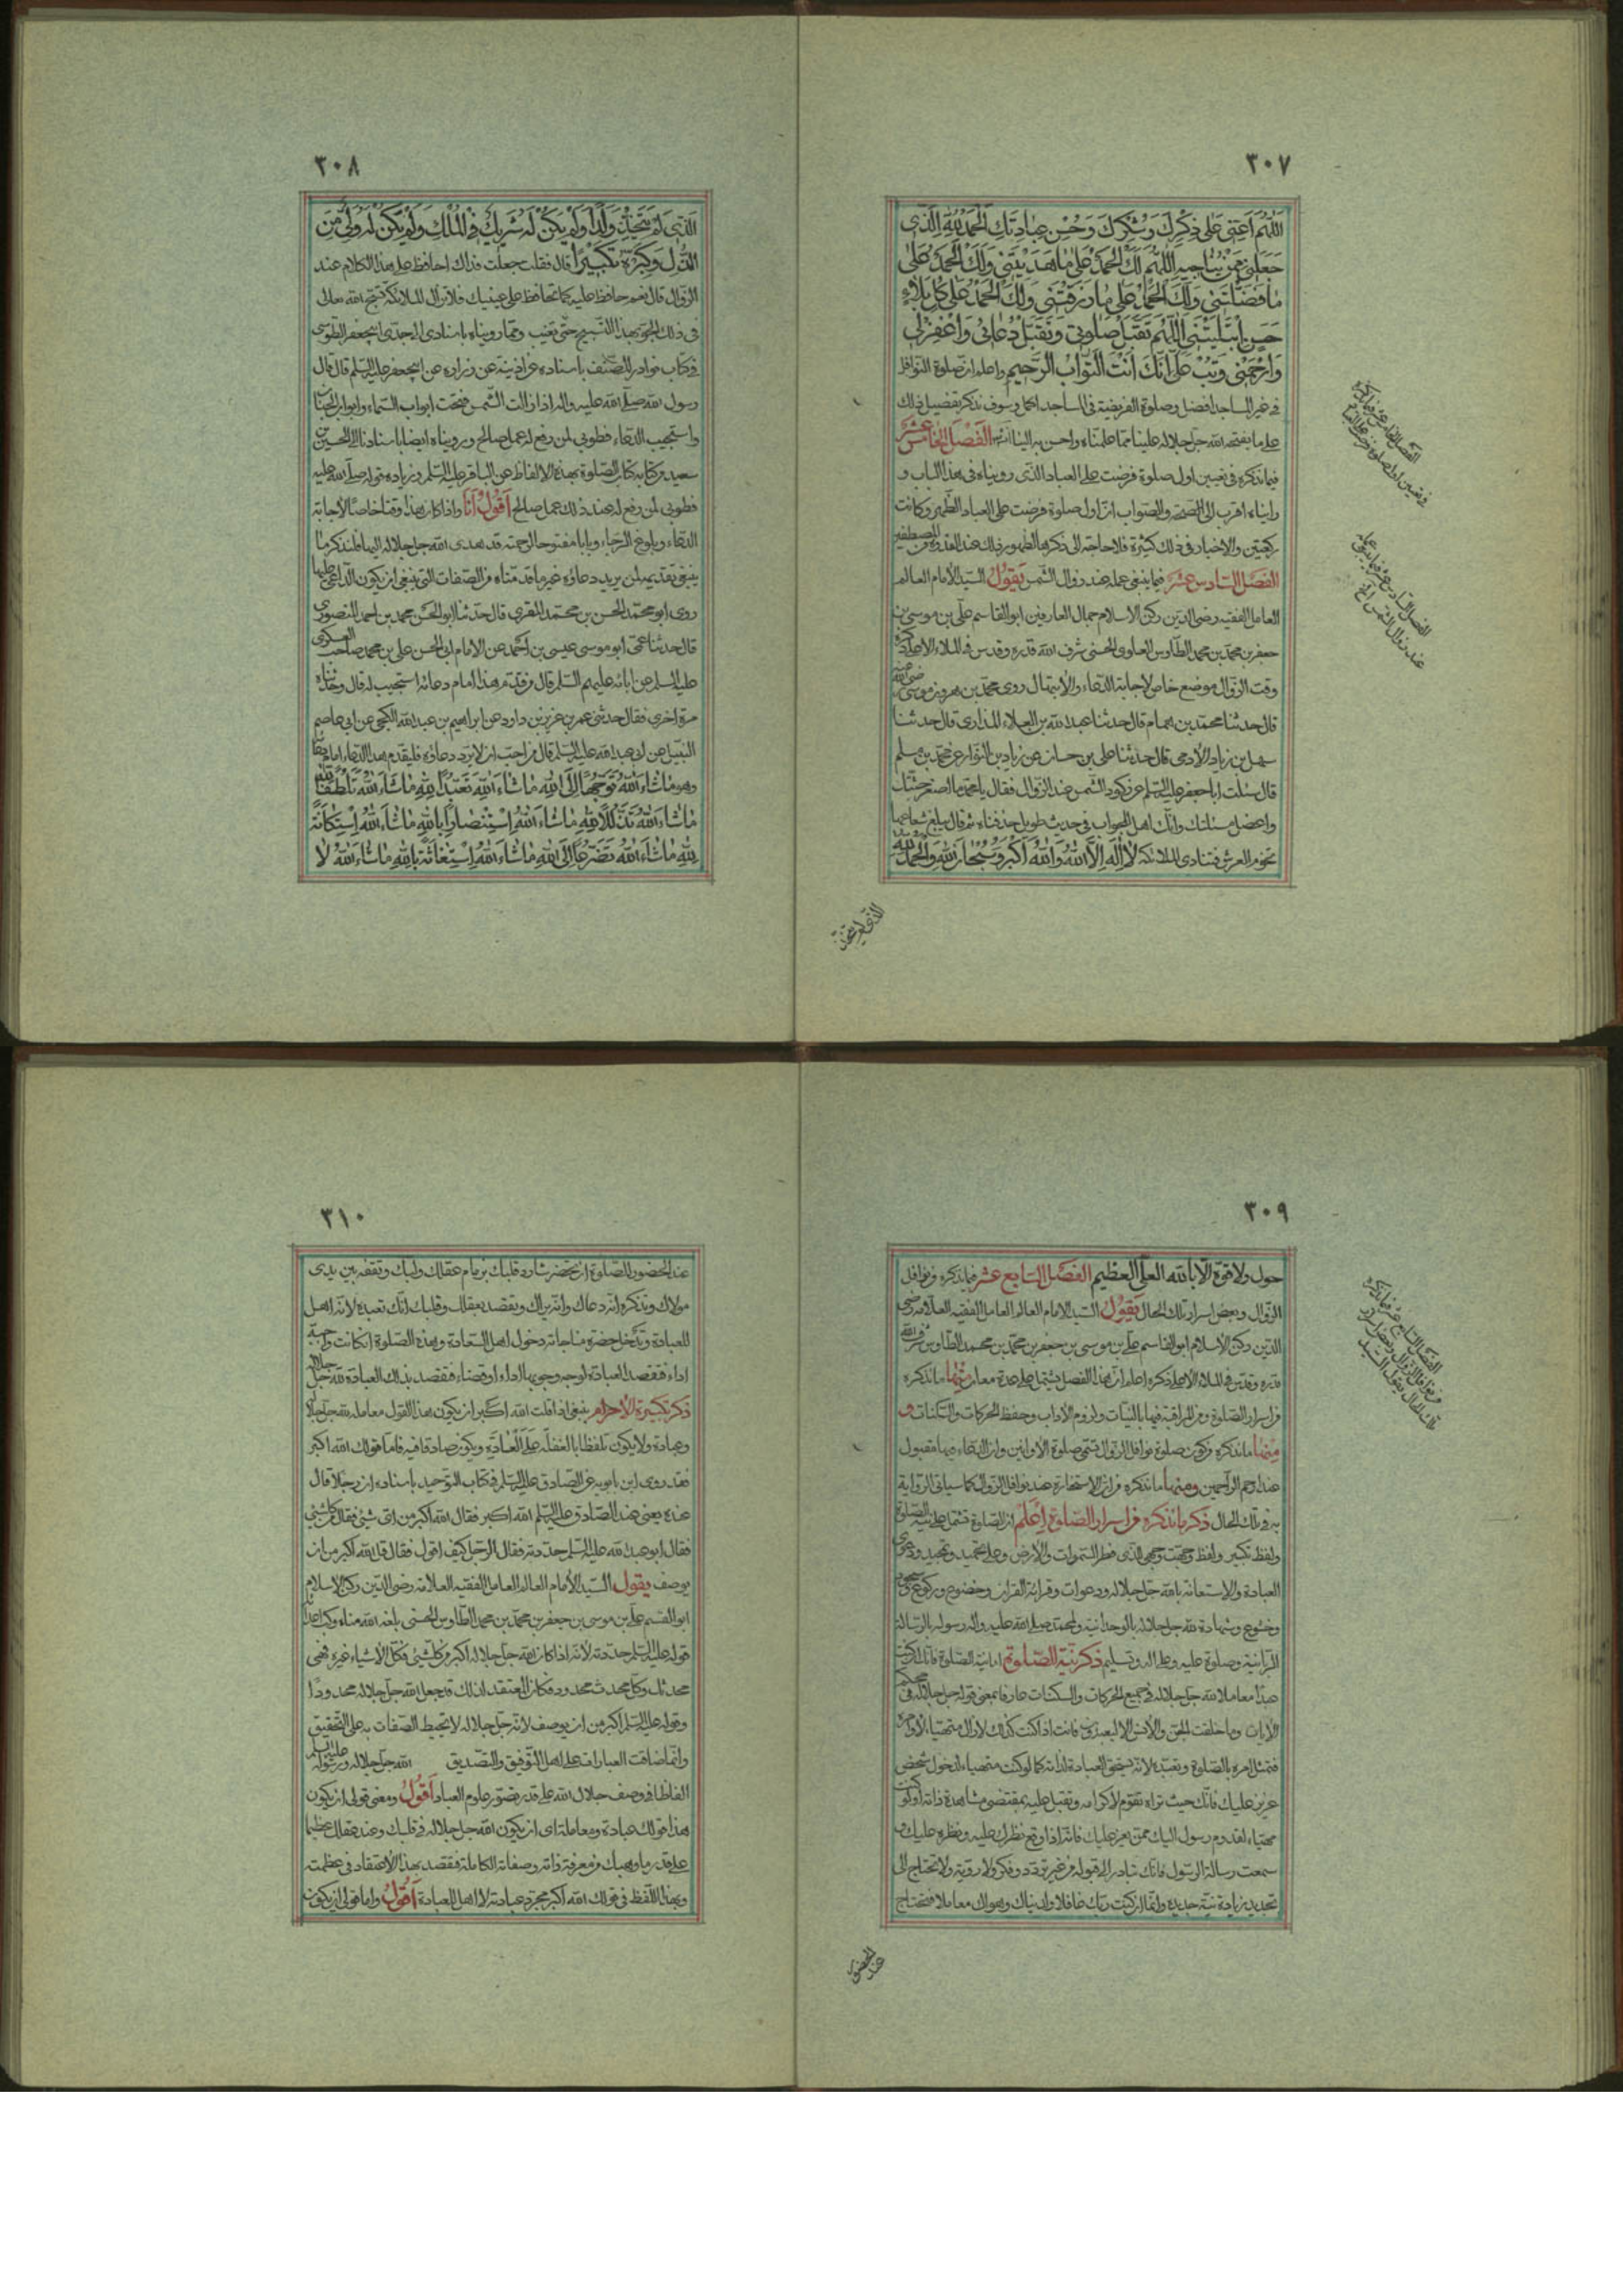 ٣٠٧
اللهم اعني على ذكرك وشكرك وحسن عبادتك الحمد لله الذي
جعلني ممن يناجيه اللهم لك الحمد على ما هديتني ولك الحمد على
ما فضلتني ولك الحمد على ما رزقتني ولك الحمد على كل بلاء
حسن ابتليتني اللهم تقبل صلوتي وتقبل دعائي واغفر لي
وارحمني وتب علي انك انت التواب الرحيم واعلم ان صلوة النوافل
في غير المساجد افضل وصلوة الفريضة في المساجد اكمل وسوف نذكر تفضيل ذلك
على ما يفتحه الله جل جلاله علينا مما علمناه واحسن به الينا الفصل الخامس عشر
فيما نذكره في تعيين اول صلوة فرضت على العباد الذي رويناه في هذا الباب و
رايناه اقرب الى الصحة والصواب ان اول صلوة فرضت على العباد الظهر وكانت
ركعتين والاخبار في ذلك كثيرة فلا حاجة الى ذكرها لظهور ذلك عند
الفصل السادس عشر فيما ينبغي عمله عند زوال الشمس يقول السيد الامام العالم
العامل الفقيه رضي الدين ركن الاسلام جمال العارفين ابو القاسم علي بن موسى بن
جعفر بن محمد بن محمد الطاوس العلوي الحسني شرف الله قدره وقدس في الملاء الاعلى ذكره
وقت الزوال موضع خاص لاجابة الدعاء والابتهال روى محمد بن هرون بن موسى رضي الله عنه
قال حدثنا محمد بن همام قال حدثنا عبد الله بن العلاء المذاري قال حدثنا
سهل بن زياد الادمي قال حدثنا علي بن حسان عن زياد بن النوار عن محمد بن مسلم
قال سئلت ابا جعفر عليه السلم عن ركود الشمس عند الزوال فقال يا محمد ما اصغر جثتك
واعضل مسئلتك وانك اهل للجواب في حديث طويل حذفناه ثم قال يبلغ شعاعها
تخوم العرش فتنادي الملائكة لا اله الا الله والله اكبر وسبحان الله والحمد لله
٣٠٨
الذي لم يتخذ ولدا ولم يكن له شريك في الملك ولم يكن له ولي من
الذل وكبره تكبيرا قال فقلت جعلت فداك احافظ على هذا الكلام عند
الزوال قال نعم حافظ عليه كما تحافظ على عينيك فلا تزال الملائكة تسبح الله تعالى
في ذلك الجو بهذا التسبيح حتى تغيب ومما رويناه باسنادي الى جدي ابي جعفر الطوسي
في كتاب نوادر المصنف باسناده عن اذينة عن زراره عن ابي جعفر عليه السلم قال قال
رسول الله صلى الله عليه واله اذا زالت الشمس فتحت ابواب السماء وابواب الجنان
واستجيب الدعاء فطوبى لمن رفع له عمل صالح ورويناه ايضا باسنادنا الى الحسين بن
سعيد من كتابه كتاب الصلوة بهذه الالفاظ عن الباقر عليه السلم وزياده قوله صلى الله عليه
فطوبى لمن رفع له عند ذلك عمل صالح اقول انا واذا كان هذا وقتا خاصا لاجابة
الدعاء وبلوغ الرجاء وبابا مفتوحا لرحمة قد هدى الله جل جلاله اليها فلنذكر ما
ينبغي تقديمه لمن يريد دعاؤه غير ما قدمناه من الصفات التي ينبغي ان يكون الداعي عليها
روى ابو محمد الحسن بن محمد المقري قال حدثنا ابو الحسن محمد بن احمد المنصوري
قال حدثنا عمي ابو موسى عيسى بن احمد عن الامام ابي الحسن علي بن محمد صاحب العسكري
عليه السلم عن ابائه عليهم السلم قال من قدم هذا امام دعائه استجيب له قال وحدثناه
مرة اخرى فقال حدثني عمر بن عزيز بن داود عن ابراهيم بن عبد الله الكجي عن ابي عاصم
النبيل عن ابي عبد الله عليه السلم قال من احب ان لا يرد دعاؤه فليقدم هذا الدعاء امام دعائه
وهو ما شاء الله توجها الى الله ما شاء الله تعبدا لله ما شاء الله تلطفا لله
ما شاء الله تذللا لله ما شاء الله استنصارا بالله ما شاء الله استكانة
لله ما شاء الله تضرعا الى الله ما شاء الله استغاثة بالله ما شاء الله لا
٣٠٩
حول ولا قوة الا بالله العلي العظيم الفصل السابع عشر فيما نذكره من نوافل
الزوال وبعض اسرار تلك الحال يقول السيد الامام العالم العامل الفقيه العلامه رضي
الدين ركن الاسلام ابو القاسم علي بن موسى بن جعفر بن محمد بن محمد الطاوس شرف الله
قدره وقدس في الملاء الاعلى ذكره اعلم ان هذا الفصل يشتمل على عدة معان منها ما نذكره
من اسرار الصلوة ومن المراقبة فيها بالنيات ولزوم الاداب وحفظ الحركات والسكنات و
منها ما نذكره من كون صلوة نوافل الزوال تسمى صلوة الاوابين وان الدعاء فيها مقبول
عند ارحم الراحمين ومنها ما نذكره من ان الاستخارة عند نوافل الزوال كما سياتي الرواية
به في تلك الحال ذكر ما نذكره من اسرار الصلوة اعلم ان الصلوة تشتمل على نية الصلوة
ولفظ تكبير ولفظ وجهت وجهي للذي فطر السموات والارض وعلى تحميد وتمجيد ودعوى
العبادة والاستعانة بالله جل جلاله ودعوات وقرائة القران وخضوع وركوع وسجود
وخشوع وشهادة لله جل جلاله بالوحدانية ولمحمد صلى الله عليه واله رسوله بالرسالة
الربانية وصلوة عليه وعلى اله وتسليم ذكر نية الصلوة اما نية الصلوة فانك ان كنت
عبدا معاملا لله جل جلاله في جميع الحركات والسكنات عارفا بمعنى قوله جل جلاله في محكم
الايات وما خلقت الجن والانس الا ليعبدون فانت اذا كنت كذلك لا تزال متهيئا لاوامره
فتمتثل امره بالصلوة وتعبده لانه يستحق العبادة لذاته كما لو كنت متهيئا لدخول شخص
عزيز عليك فانك حيث تراه تقوم لاكرامه وتقبل عليه بمقتضى مشاهدة ذاته او كنت
متهيئا لقدوم رسول اليك ممن يعز عليك فانه اذا وقع نظرك عليه ونظره عليك و
سمعت رسالة الرسول فانك تبادر الى قوله من غير تردد وفكر ولا روية ولا تحتاج الى
تجديد زيادة نية جديدة وانما ان كنت ربك غافلا ولدنياك وهواك معاملا فتحتاج
عند الحضور
٣١٠
عند الحضور للصلوة ان تحضر شارد قلبك بزمام عقلك ولبك وتقف بين يدي
مولاك وتذكره انه دعاك وانه يراك وتقصد بعقلك وقلبك انك تعبده لانه اهل
للعبادة وتدخل حضرة مناجاته دخول اهل السعادة وهذه الصلوة ان كانت واجبة
اداء فتقصد العبادة لوجه وجوبها اداء او قضاء فتقصد بذلك العبادة لله جل جلاله
ذكر تكبيرة الاحرام ينبغي اذا قلت الله اكبر ان يكون هذا القول معاملة لله جل جلاله
وعبادة ولا يكون تلفظا بالغفلة على العادة ويكون صادقا فيه فاما قولك الله اكبر
فقد روى ابن بابويه عن الصادق عليه السلم في كتاب التوحيد باسناده ان رجلا قال
عنده يعني عند الصادق عليه السلم الله اكبر فقال الله اكبر من اي شيئ فقال من كل شيئ
فقال ابو عبد الله عليه السلم حددته فقال الرجل كيف اقول فقال قل الله اكبر من ان
يوصف يقول السيد الامام العالم العامل الفقيه العلامة رضي الدين ركن الاسلام
ابو القسم علي بن موسى بن جعفر بن محمد بن محمد الطاوس الحسني بلغه الله مناه وكبت اعداه
قوله عليه السلم حددته لانه اذا كان الله جل جلاله اكبر من كل شيئ فكل الاشياء غيره فهي
محدثة وكل محدث محدود فكان المعتقد لذلك قد جعل الله جل جلاله محدودا
وقوله عليه السلم اكبر من ان يوصف لانه جل جلاله لا تحيط الصفات به على التحقيق
وانما ضاقت العبارات على اهل التوفيق والتصديق الله جل جلاله ورسوله عليه السلم
الفاظا في وصف جلال الله على قدر قصور علوم العباد اقول ومعنى قولي ان يكون
هذا قولك عبادة ومعاملة اي ان يكون الله جل جلاله في قلبك وعند عقلك عظيما
على قدر ما وهبك من معرفة ذاته وصفاته الكاملة فتقصد بهذا الاعتقاد في عظمته
وبهذا اللفظ في قولك الله اكبر مجرد عبادته لانه اهل للعبادة اقول واما قولي ان يكون